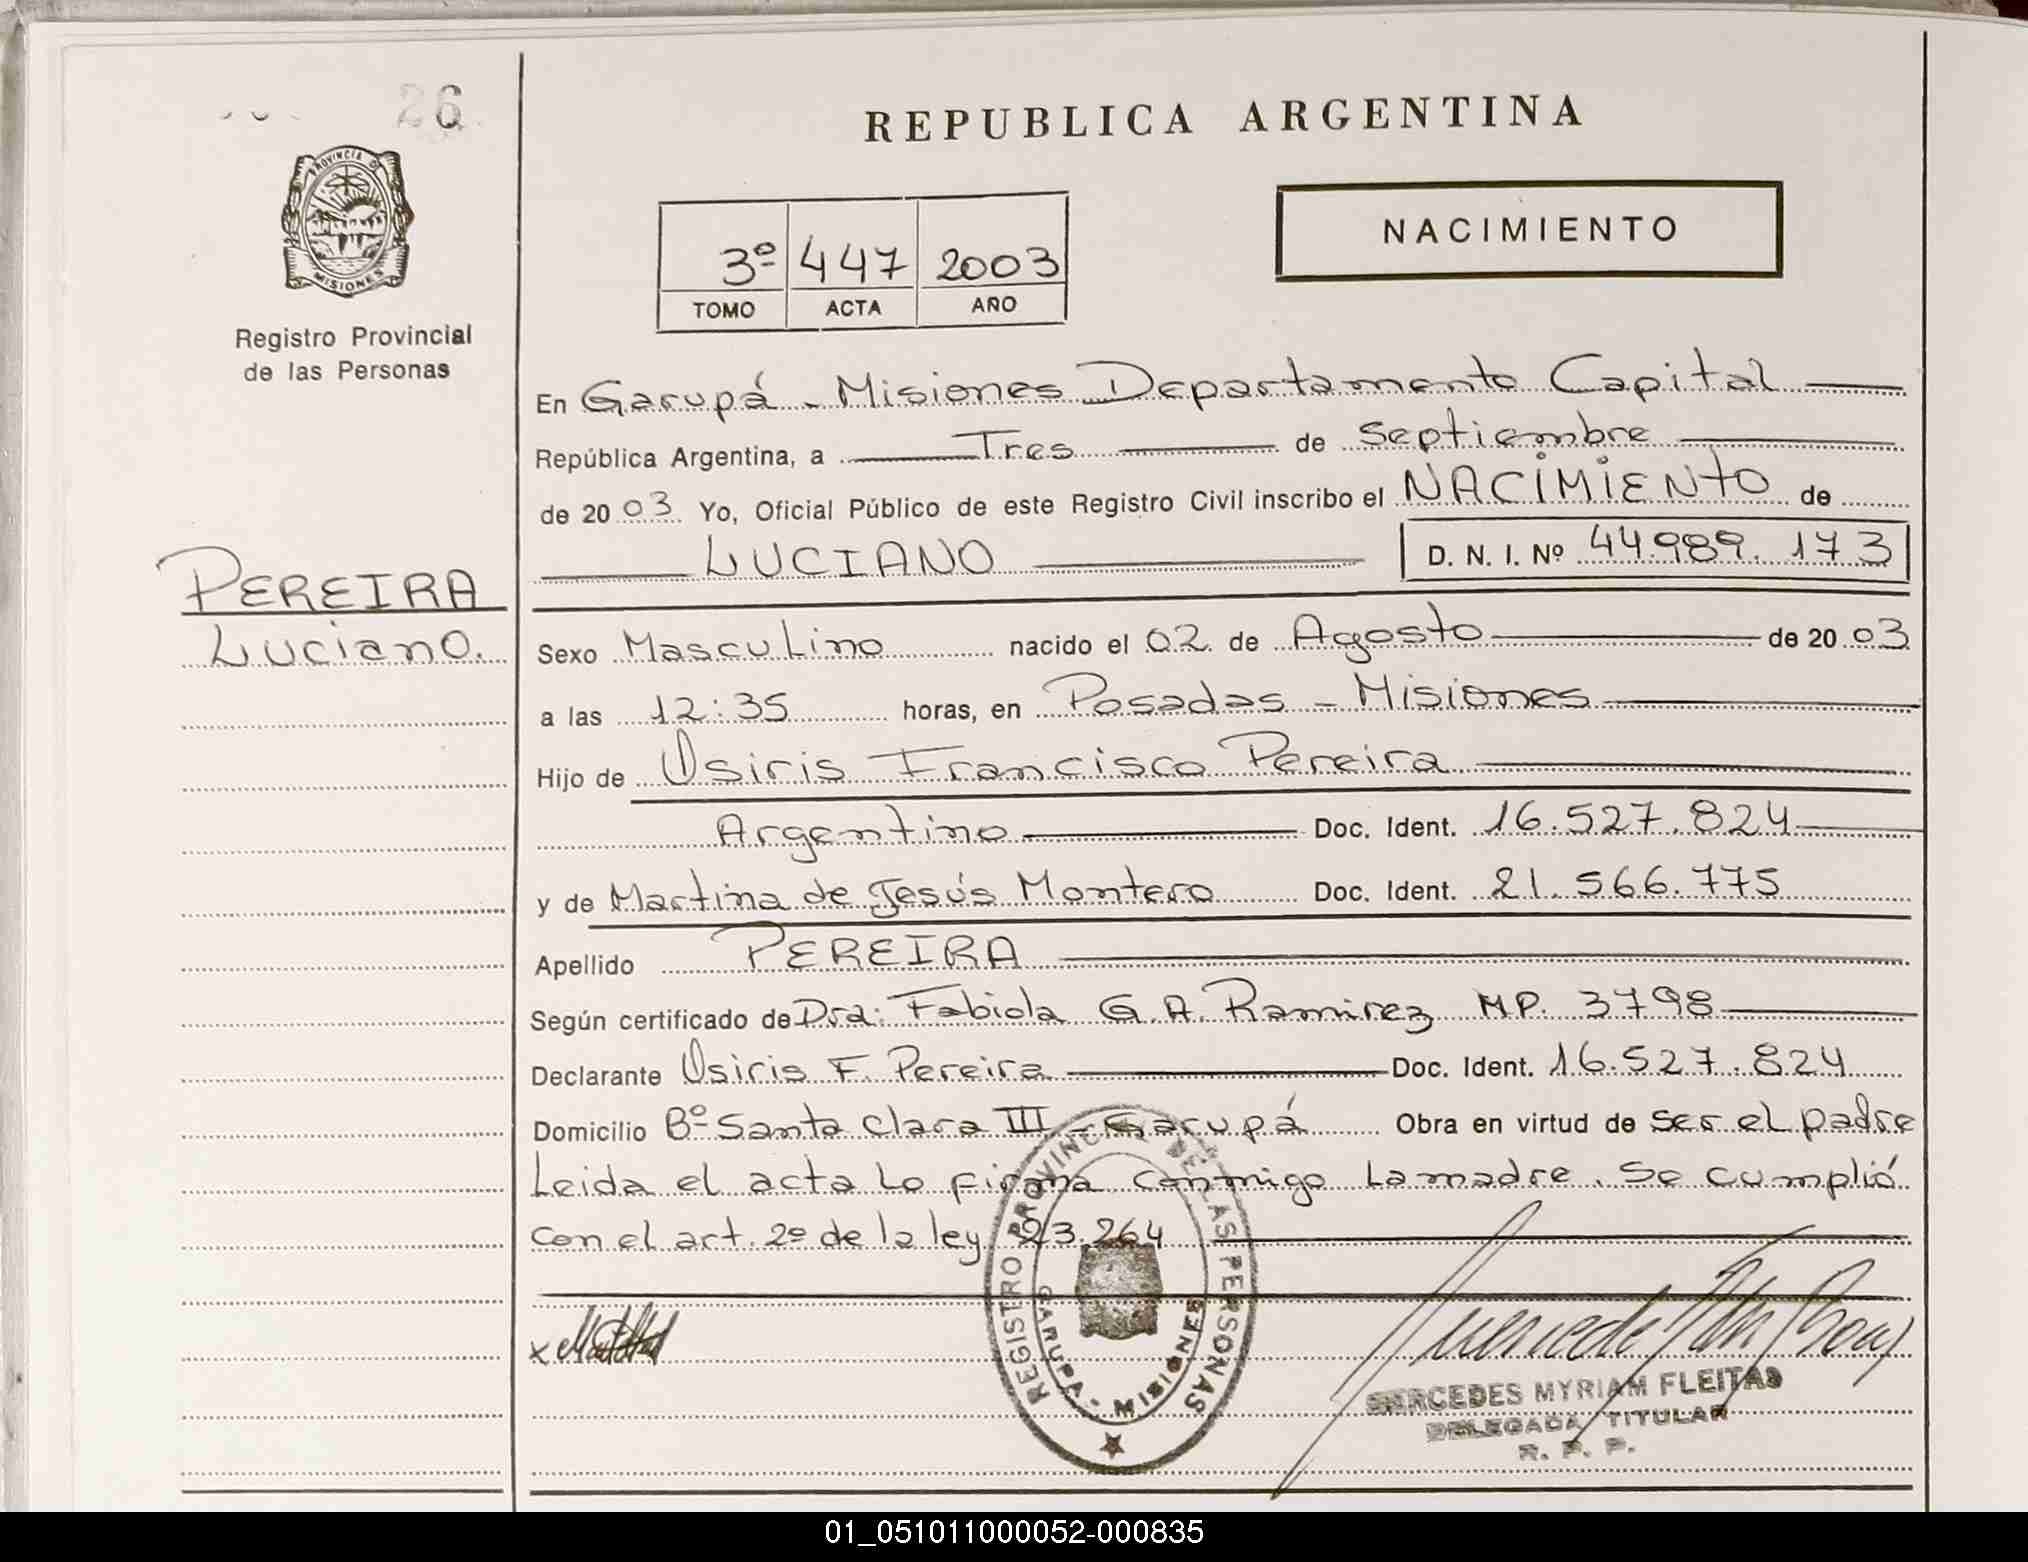 26
REPUBLICA ARGENTINA
PROVINCIA DE
MISIONES
Registro Provincial
de las Personas
3º 447 2003
TOMO ACTA AÑO
NACIMIENTO
En Garupá - Misiones Departamento Capital
República Argentina, a Tres de Septiembre
de 2003 Yo, Oficial Público de este Registro Civil inscribo el NACIMIENTO de
LUCIANO D. N. I. Nº 44.989.173
PEREIRA
Luciano.
Sexo Masculino nacido el 02 de Agosto de 2003
a las 12:35 horas, en Posadas - Misiones
Hijo de Osiris Francisco Pereira
Argentino Doc. Ident. 16.527.824
y de Martina de Jesús Montero Doc. Ident. 21.566.775
Apellido PEREIRA
Según certificado de Dra: Fabiola G. A. Ramirez MP. 3798
Declarante Osiris F. Pereira Doc. Ident. 16.527.824
Domicilio Bº Santa Clara III - Garupá Obra en virtud de ser el padre
Leida el acta lo firma conmigo la madre. Se cumplió
con el art. 2º de la ley 23.264
REGISTRO PROVINCIAL DE LAS PERSONAS
GARUPA - MISIONES
MERCEDES MYRIAM FLEITAS
DELEGADA TITULAR
R. P. P.
01_051011000052-000835